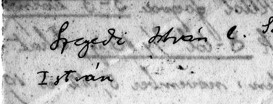 Szegedi István l. 
István